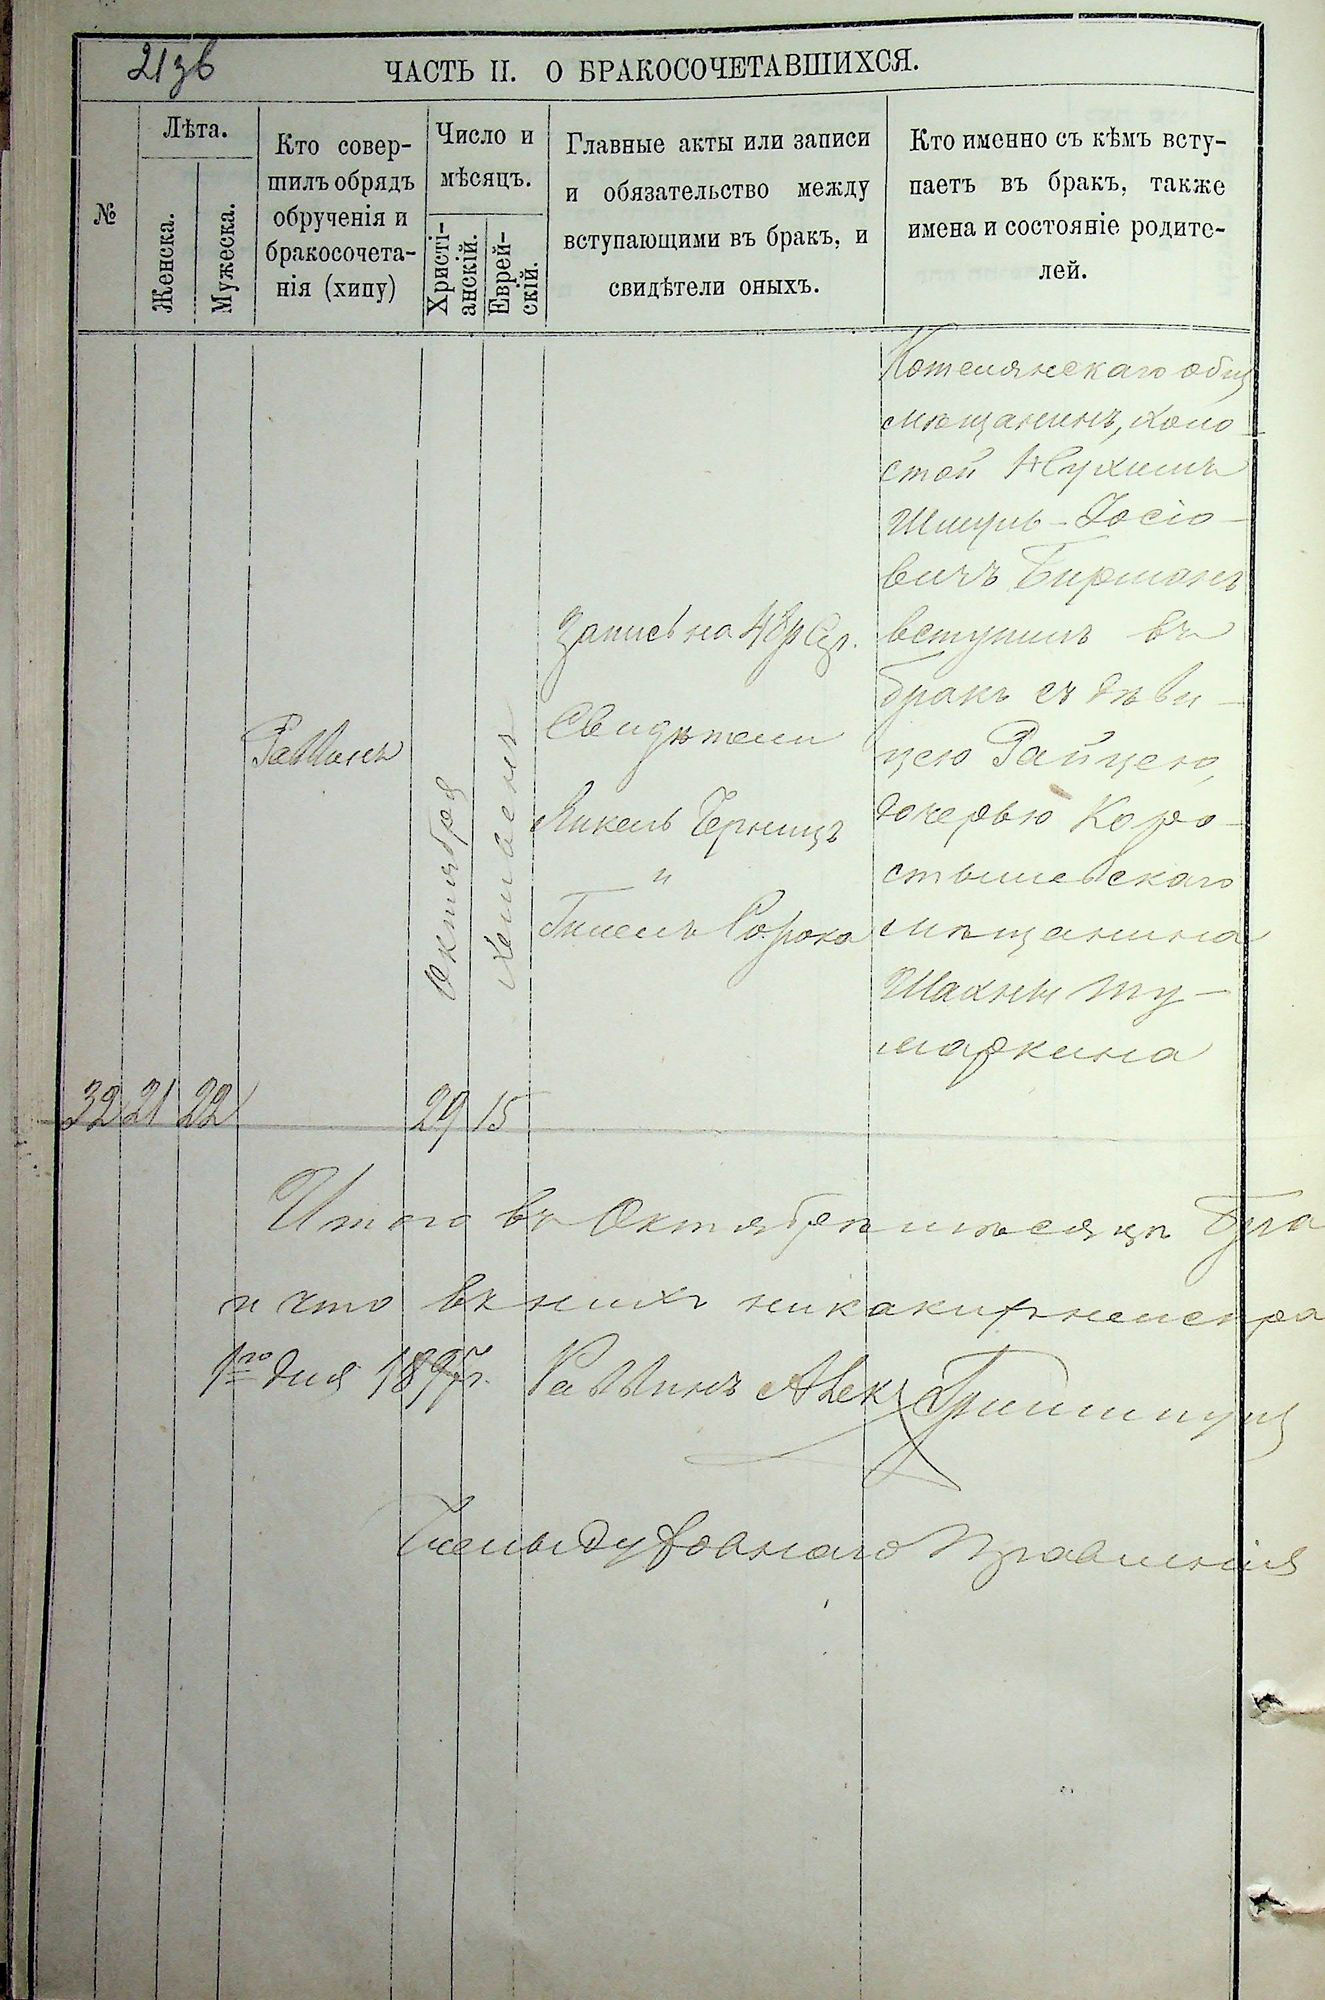 21зв
ЧАСТЬ II. О БРАКОСОЧЕТАВШИХСЯ.
№
Лѣта.
Женска.
Мужеска.
Кто совер-
шилъ обрядъ
обрученія и
бракосочета-
нія (хипу)
Число и
мѣсяцъ.
Христі-
анскій.
Еврей-
скій.
Главные акты или записи
и обязательство между
вступающими въ бракъ, и
свидѣтели оныхъ.
Кто именно съ кѣмъ всту-
паетъ въ бракъ, также
имена и состояніе родите-
лей.
32
21
22
Раввинъ
Октября
29
15
Запись на 48р
Свидѣтели
Янкель
и
Гилель Сорока
общ
мѣщанинъ, холо
стой Нухимъ
Шмуль-Іосіо-
вичъ Бирманъ
вступилъ въ
бракъ съ дѣви-
цею Райцею,
дочерью Коро-
стышевскаго
мѣщанина
Шахны Ту-
маркина
Итого въ Октябрѣ мѣсяцѣ бра
и что въ нихъ никакихъ неиспра
1го дня 1897г. Раввинъ
Члены Духовнаго Правленія